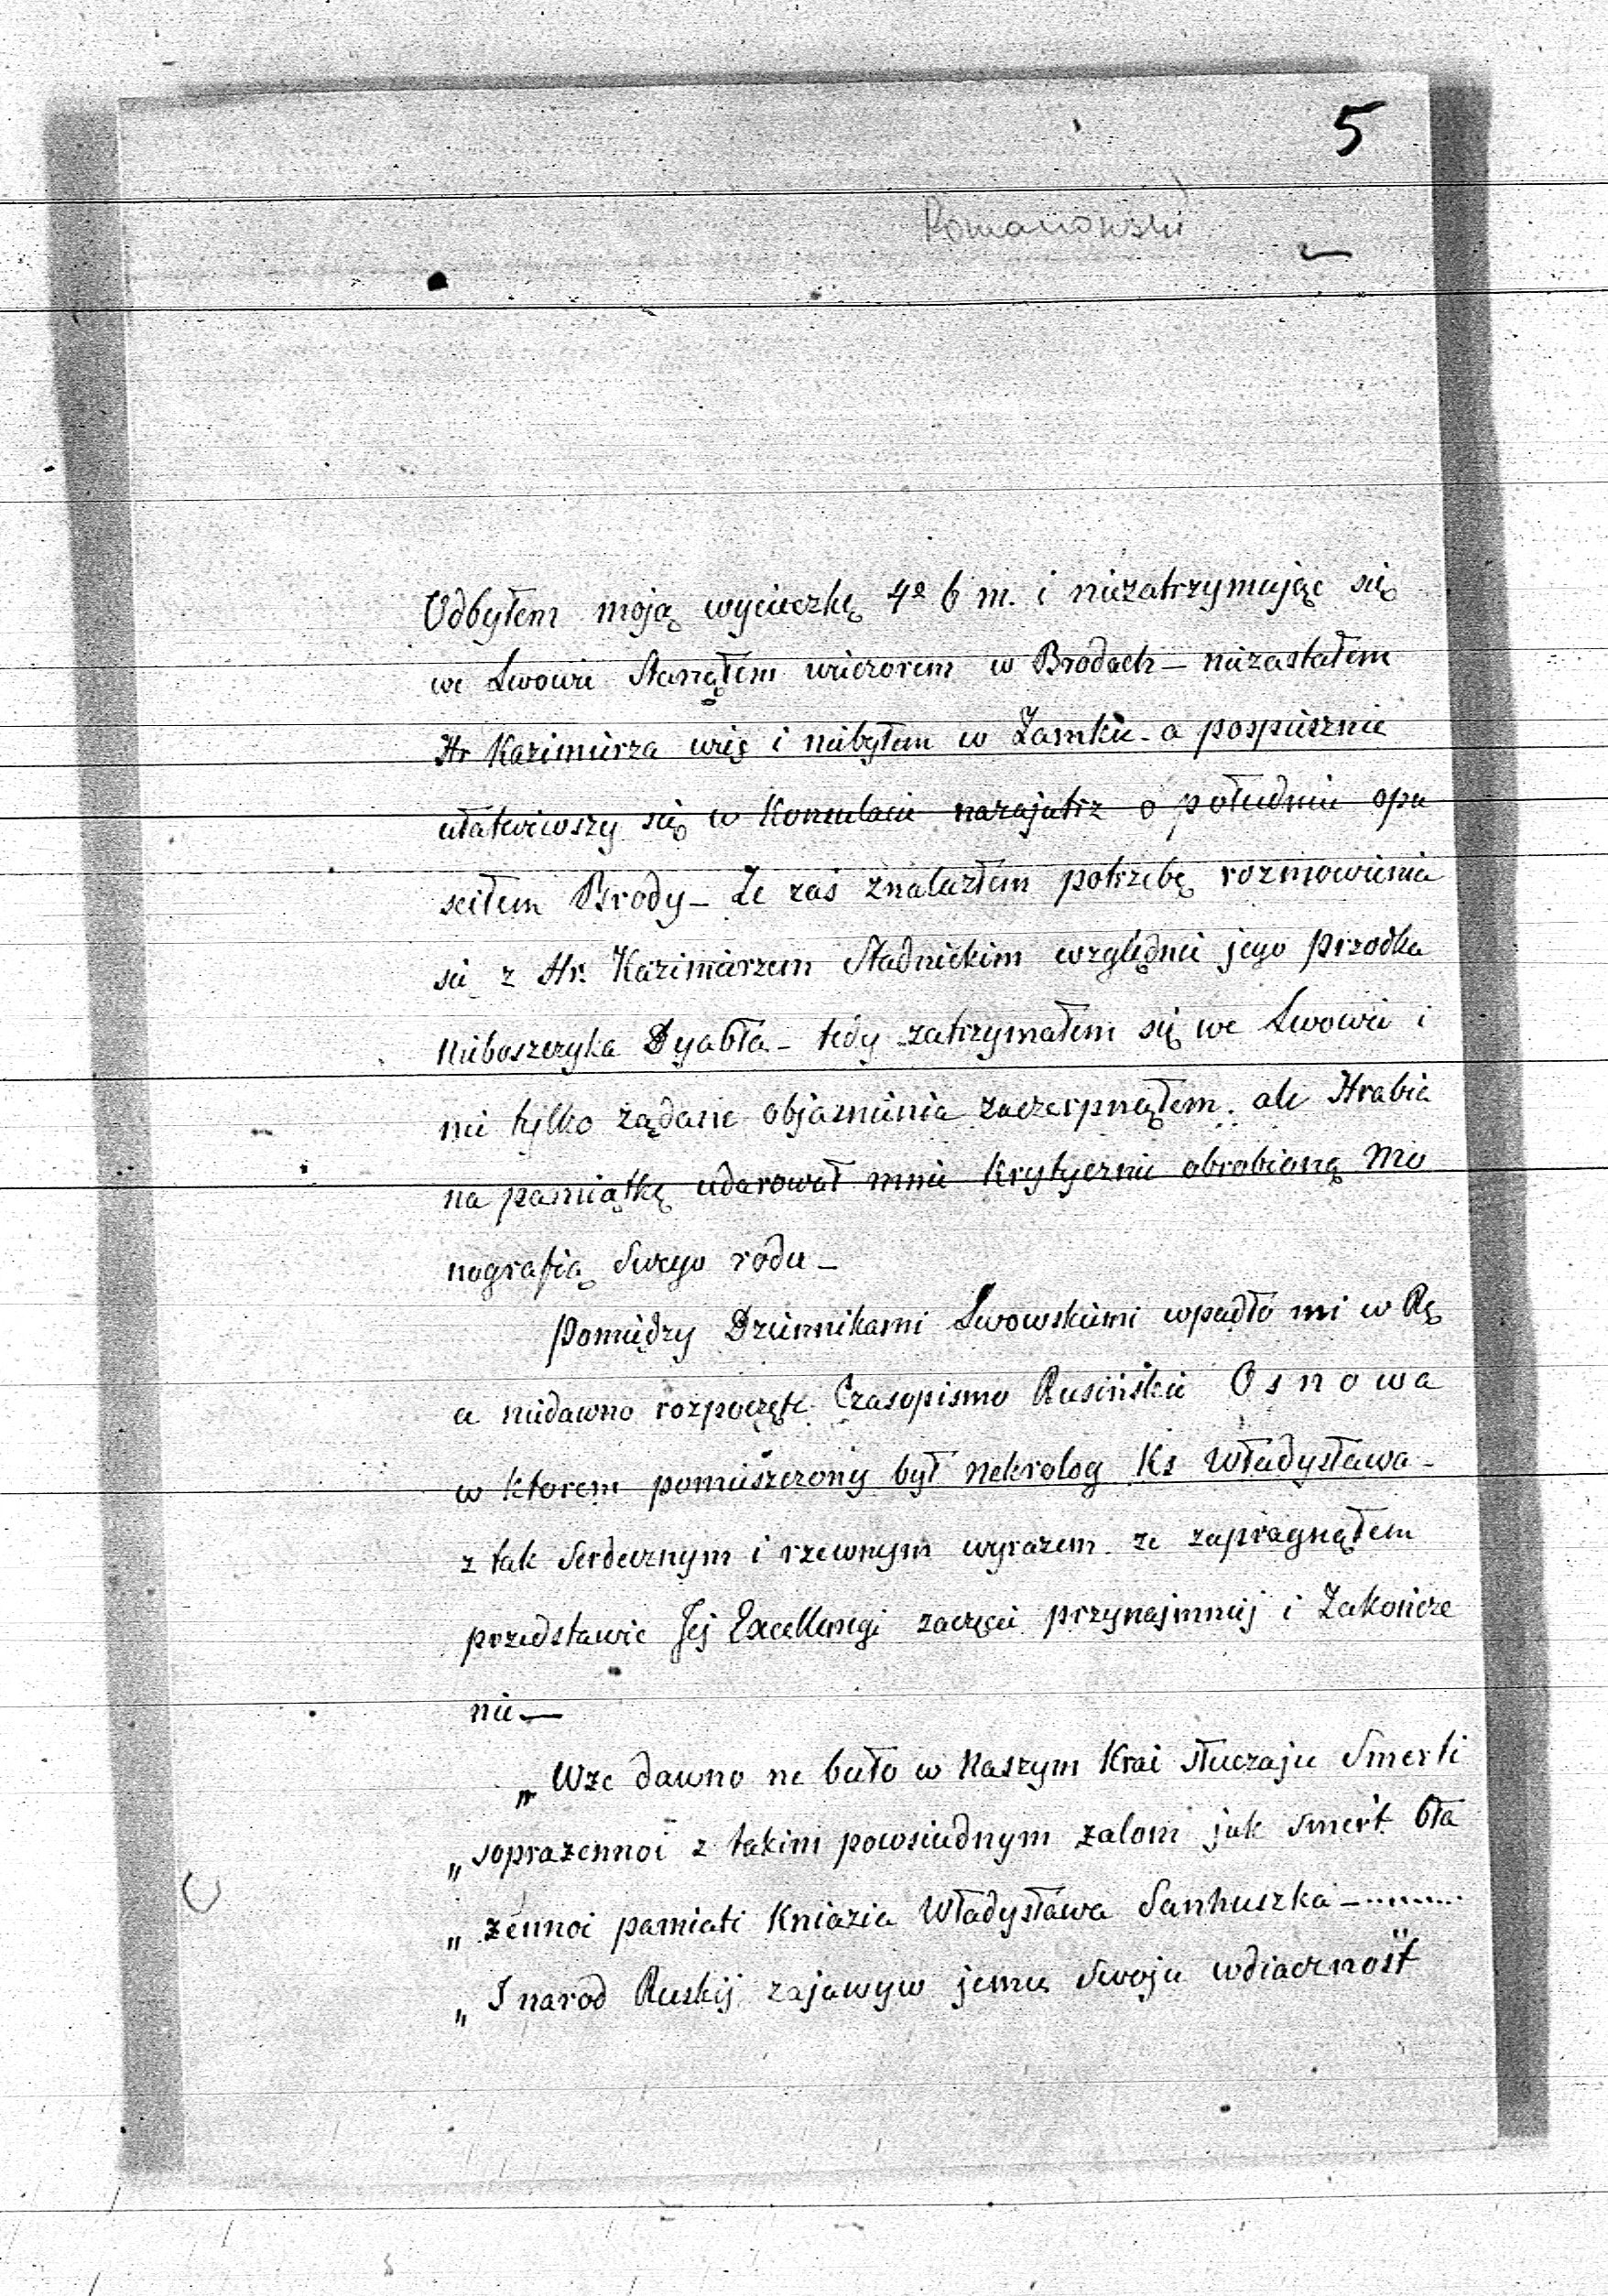 5
Romanowski
Odbyłem moją wycieczkę 4º b m. i niezatrzymując się
we Lwowie Stanąłem wieczorem w Brodach – niezastałem
Hr Kazimierza więc i niebyłem w Zamku – a pospiesznie
ułatwiwszy się w Konsulacie nazajutrz o południu opu
sciłem Brody – Że zaś znalazłem potrzebę rozmowienia
się z Hr. Kazimierzem Stadnickim względnie jego przodka
nieboszczyka Dyabła – tedy zatrzymałem się we Lwowie i
nie tylko żądane objasnienia zaczerpnąłem. ale Hrabia
na pamiątkę udarował mnie krytycznie obrobioną Mo
nografią Swego rodu –
Pomiędzy Dziennikami Lwowskiemi wpadło mi w Rę
ce niedawno rozpoczęte Czasopismo Rusińskie Osnowa
w ktorem pomieszczony był nekrolog Ks Władysława –
z tak Serdecznym i rzewnym wyrazem. że zapragnąłem
przedstawic Jej Excellencyi zaczęcie przynajmniej i Zakończe
nie —
„ Wże dawno ne buło w Naszym Krai słuczaju Smerti
„ soprażennoi z takim powsiudnym żalom jak smert' bła
„ żennoi pamiati Kniazia Władysława Sanhuszka – .........
„ I narod Ruskij zajawyw jemu Swoju wdiacznost̋